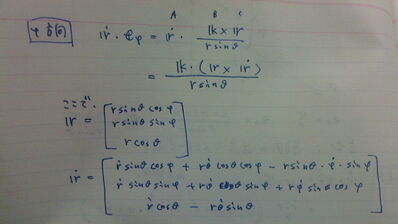 φ 向き
A B C
ṙ · e_φ = ṙ · (k × r) / (r sinθ)
= k · (r × ṙ) / (r sinθ)
ここで、
r = [ r sinθ cosφ
r sinθ sinφ
r cosθ ]
ṙ = [ ṙ sinθ cosφ + r θ̇ cosθ cosφ − r sinθ · φ̇ · sinφ
ṙ sinθ sinφ + r θ̇ cosθ sinφ + r φ̇ sinθ cosφ
ṙ cosθ − r θ̇ sinθ ]